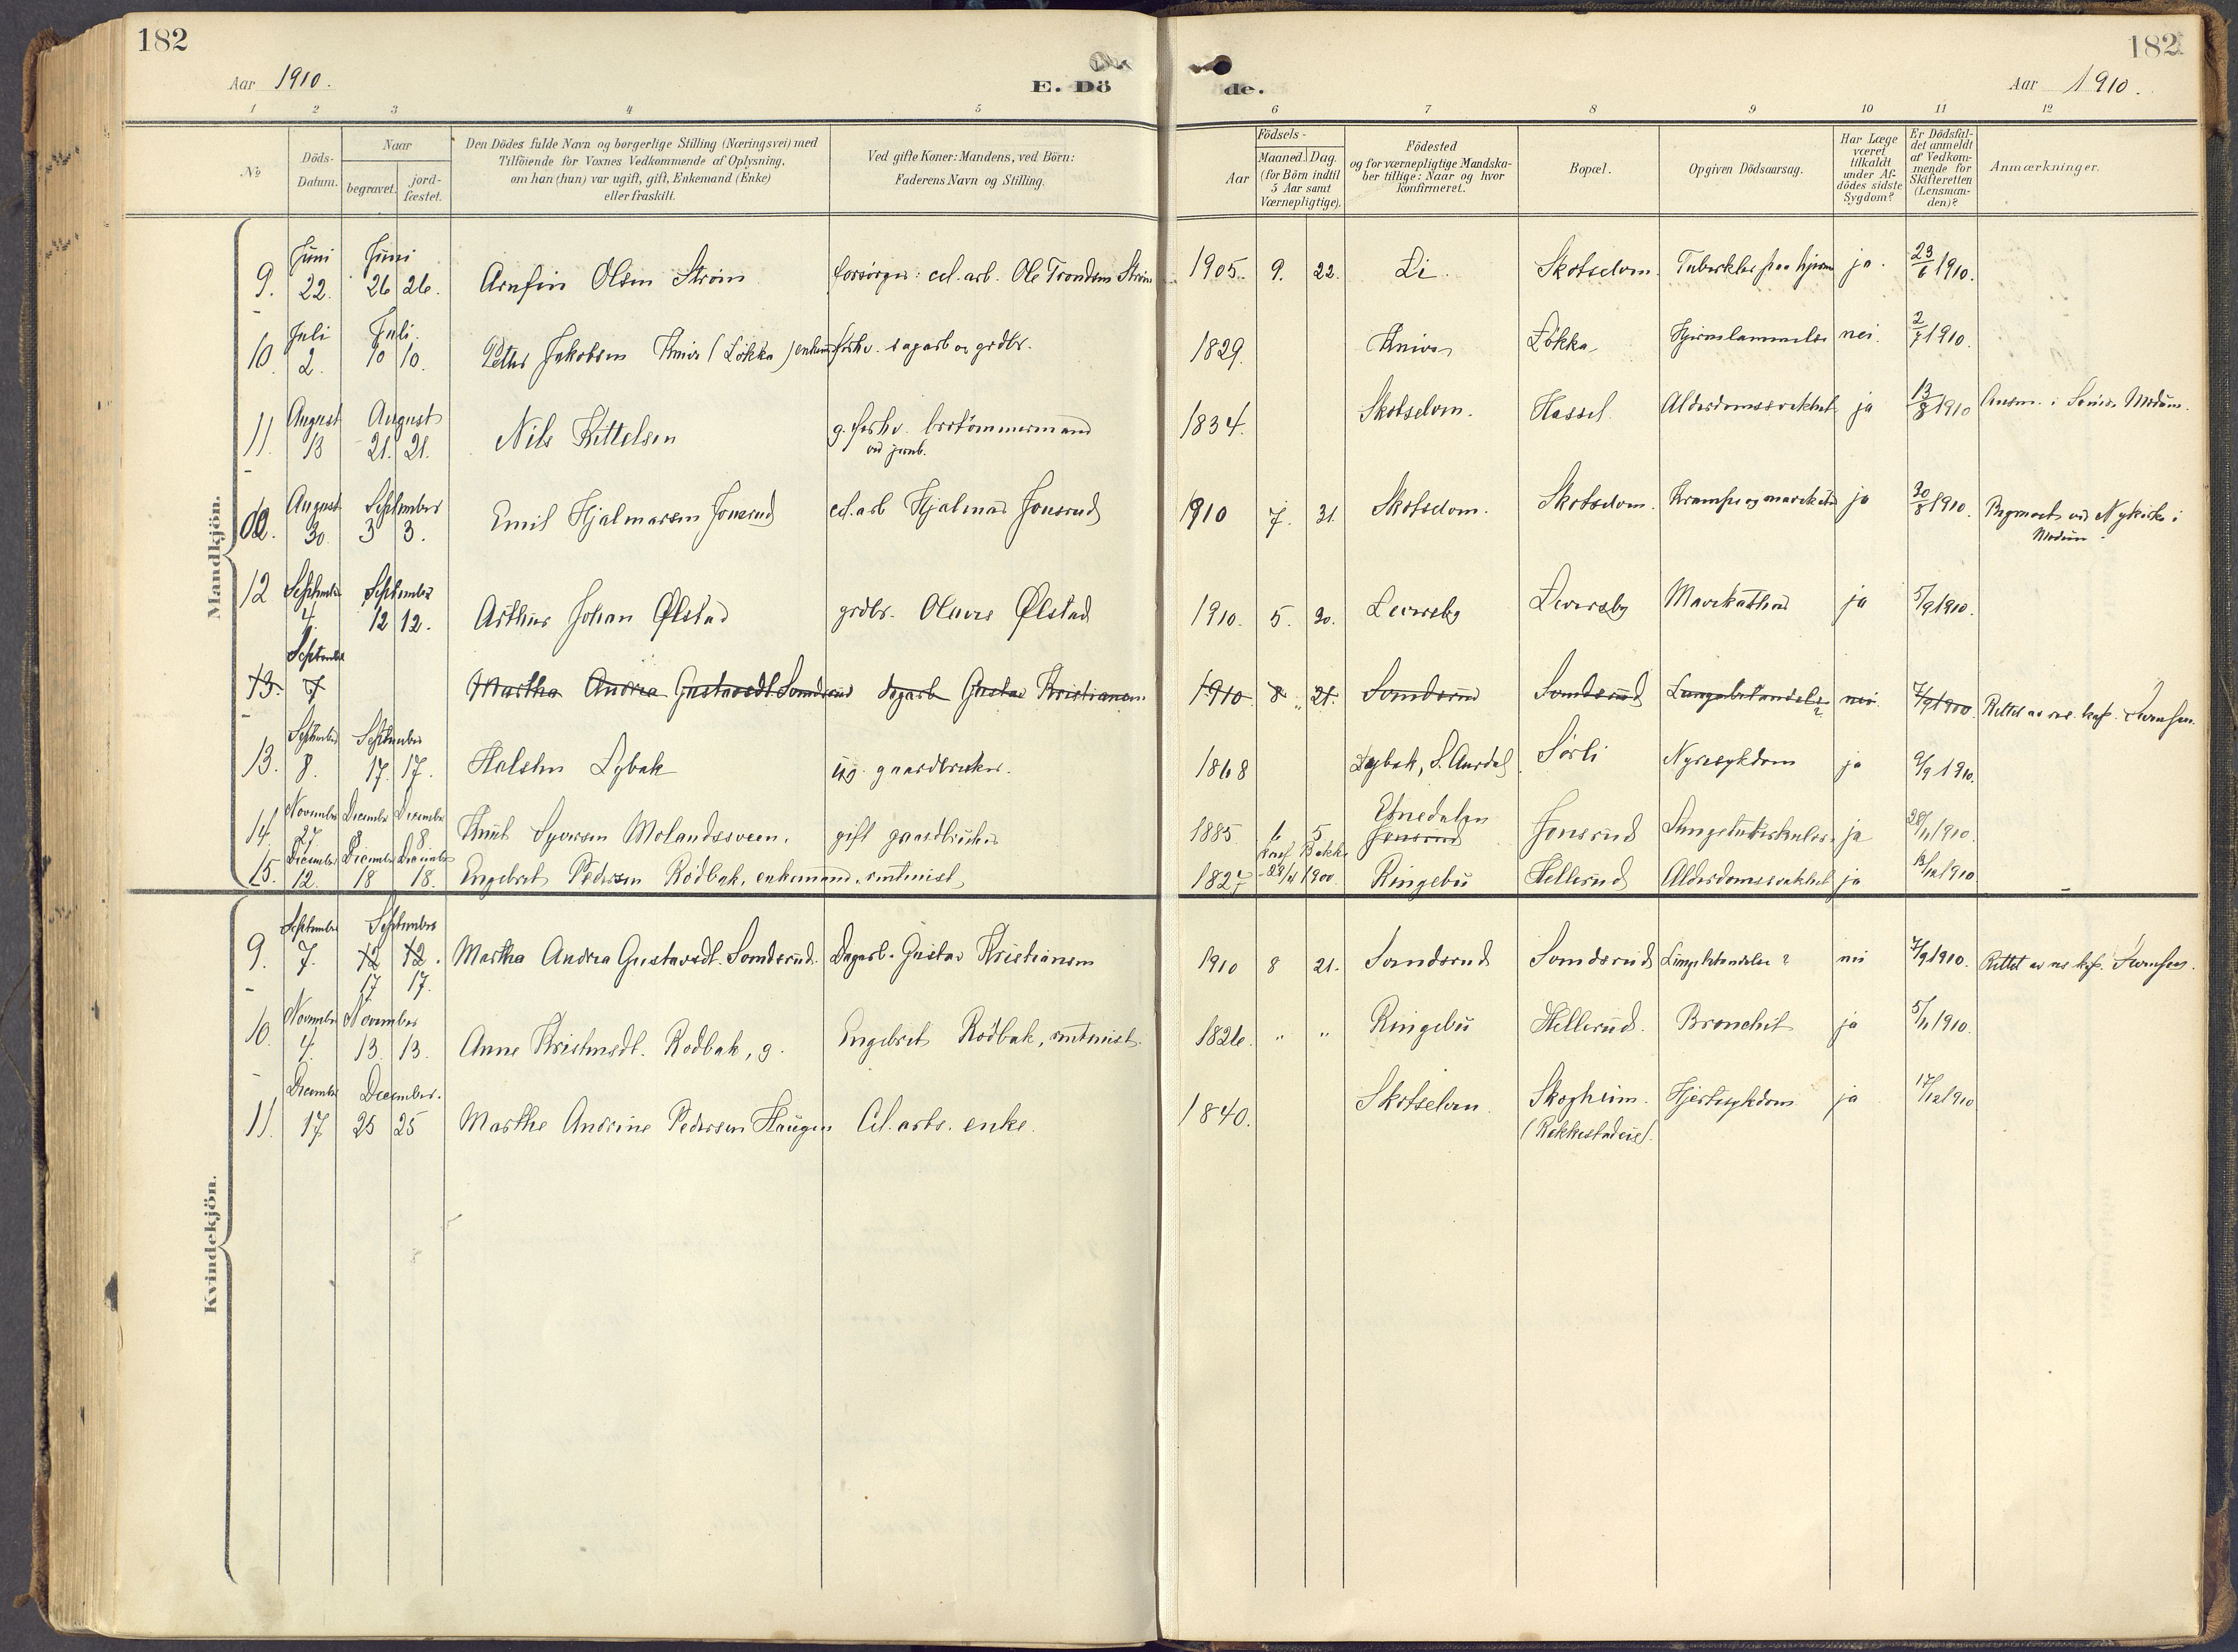 182
182
Aar 1910.
E. Döde.
Aar 1910.
1 2 3 4 5 6 7 8 9 10 11 12
№
Döds-Datum.
Naar
begravet.
jord-fæstet.
Den Dödes fulde Navn og borgerlige Stilling (Næringsvei) med
Tilföiende for Voxnes Vedkommende af Oplysning,
om han (hun) var ugift, gift, Enkemand (Enke)
eller fraskilt.
Ved gifte Koner: Mandens, ved Börn:
Faderens Navn og Stilling.
Födsels-
Aar
Maaned. Dag.
(for Börn indtil
5 Aar samt
Værnepligtige).
Födested
og for værnepligtige Mandska-
ber tillige: Naar og hvor
konfirmeret.
Bopæl.
Opgiven Dödsaarsag.
Har Læge
været
tilkaldt
under Af-
dödes sidste
Sygdom?
Er Dödsfal-
det anmeldt
af Vedkom-
mende for
Skifteretten
(Lensman-
den)?
Anmærkninger.
Mandkjön.
Juni Juni
9. 22. 26 26. Arnfin Olsen Strøm forsörger: cel. arb. Ole Trondsen Strøm 1905. 9. 22. Li. Skotselven. Tuberkler paa hjernen ja. 23/6 1910.
Juli Juli.
10. 2. 10 10. Petter Jakobsen Kniva (Løkka) enkem. forhv. sagarb og grdbr. 1829. Kniva Løkka Hjernelammelse nei. 2/7 1910.
August August
11. 13 21. 21. Nils Kittelsen g. forhv. brotömmermand 1834. Skotselven. Hassel Alderdomssvakhet ja 13/8 1910 Anm. i Modum.
ved jernb.
August September
30. 3 3. Emil Hjalmarsen Jonsrud cel. arb Hjalmar Jonsrud 1910 7. 31. Skotselven. Skotselven. Krampe og ja 30/8 1910. Begravet ved Nykirke i
Modum.
September September
12 4. 12 12. Arthur Johan Ølstad grdbr. Olaves Ølstad 1910. 5. 30. Leversby Leversby Mavekatarrh ja 5/9 1910.
September
13. 7 Martha Andrea Gustavsdt. Sondsrud dagarb Gustav Kristiansen 1910 8 21. Sondsrud Sondsrud Lungebetændelse? nei. 7/9 1900. Rettet av res. kap. Svensen.
September September
13. 8. 17. 17. Halsten Lybæk ug. gaardbruker. 1868 Lybæk, S. Aurdal Sørli Nyresykdom ja 9/9 1910.
November December December
14. 27 8 8 Knut Syversen Molandssveen. gift gaardbruker 1885 6 5 Etnedalen Jonsrud Jonsrud Lungetuberkulose ja 28/11 1910.
December December December
15. 12. 18 18. Engebret Pedersen Rödbak, enkemand, rentenist 1827 Ringebu Hellerud Alderdomssvakhet ja 13/12 1910
Kvindekjön.
September September
9. 7. 12 12. Martha Andrea Gustavsdt. Sondsrud. Dagarb. Gustav Kristiansen 1910 8 21. Sondsrud Sondsrud Lungebetændelse? nei 7/9 1910. Rettet av res kap. Svensen.
17 17.
November November
10. 4. 13. 13. Anne Kristensdt. Rödbak, g. Engebret Rödbak, rentenist. 1826. „ „ Ringebu Hellerud. Bronchit ja 5/11 1910.
December December.
11. 17 25 25 Marthe Andrine Pedersen Haugen Cel. arbs. enke. 1840. Skotselven. Skogheim. Hjertesykdom ja 17/12 1910
(Rekkestadeie).